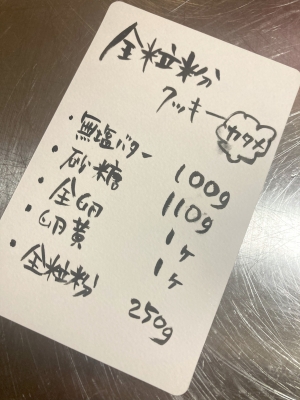 全粒粉
クッキー
カタメ
・無塩バター 100g
・砂糖 110g
・全卵 1ヶ
・卵黄 1ヶ
・全粒粉 250g